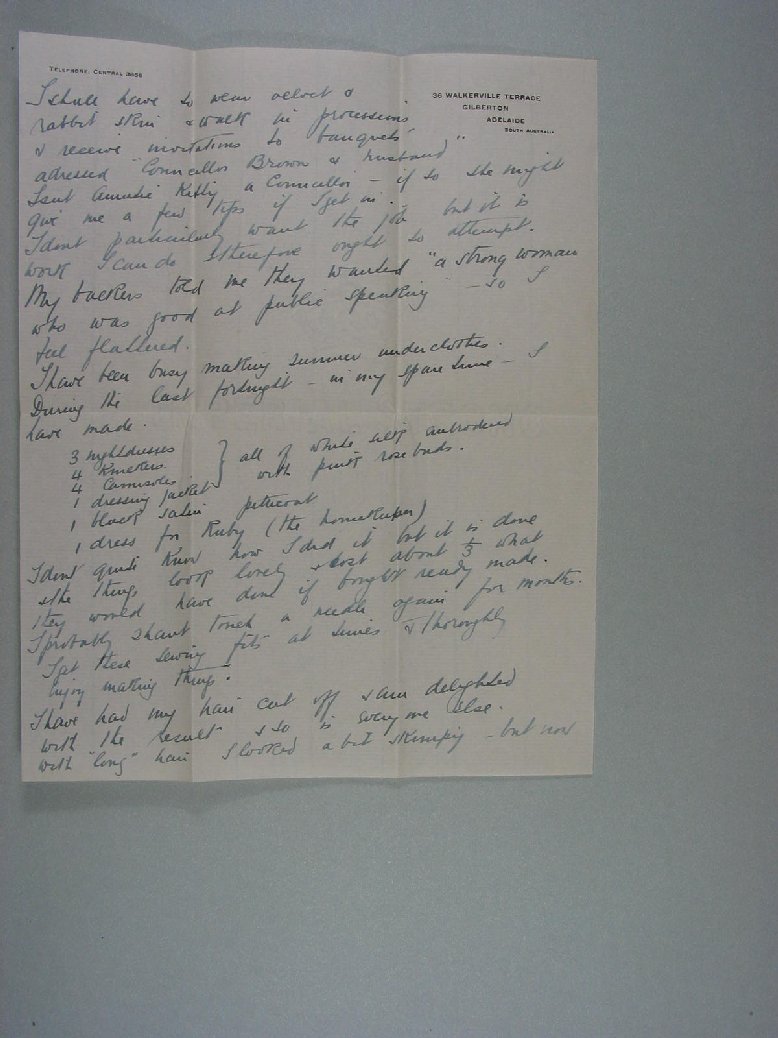 TELEPHONE, CENTRAL
36 WALKERVILLE TERRACE
GILBERTON
ADELAIDE
SOUTH AUSTRALIA
I shall have to wear velvet &
rabbit skin & walk in processions
& receive invitations to banquets
adressed "Councillor Brown & husband".
Isnt Auntie Kitty a Councillor – if so she might
give me a few tips if I get in.
I dont particularly want the job but it is
work I can do & therefore ought to attempt.
My backers told me they wanted "a strong woman
who was good at public speaking" – so I
feel flattered.
I have been busy making summer underclothes.
During the last fortnight – in my spare time – I
have made.
3 nightdresses
4 Knickers
4 Camisoles
1 dressing jacket
} all of white silk embrodered
with pink rosebuds.
1 black satin petticoat
1 dress for Ruby (the homekeeper)
I dont quite know how I did it but it is done
& the things look lovely & cost about 1/3 what
they would have done if bought ready made.
I probably shant touch a needle again for months.
I get these sewing fits at times & thoroughly
enjoy making things.
I have had my hair cut off & am delighted
with the result & so is everyone else.
with "long" hair I looked a bit skimpy – but now